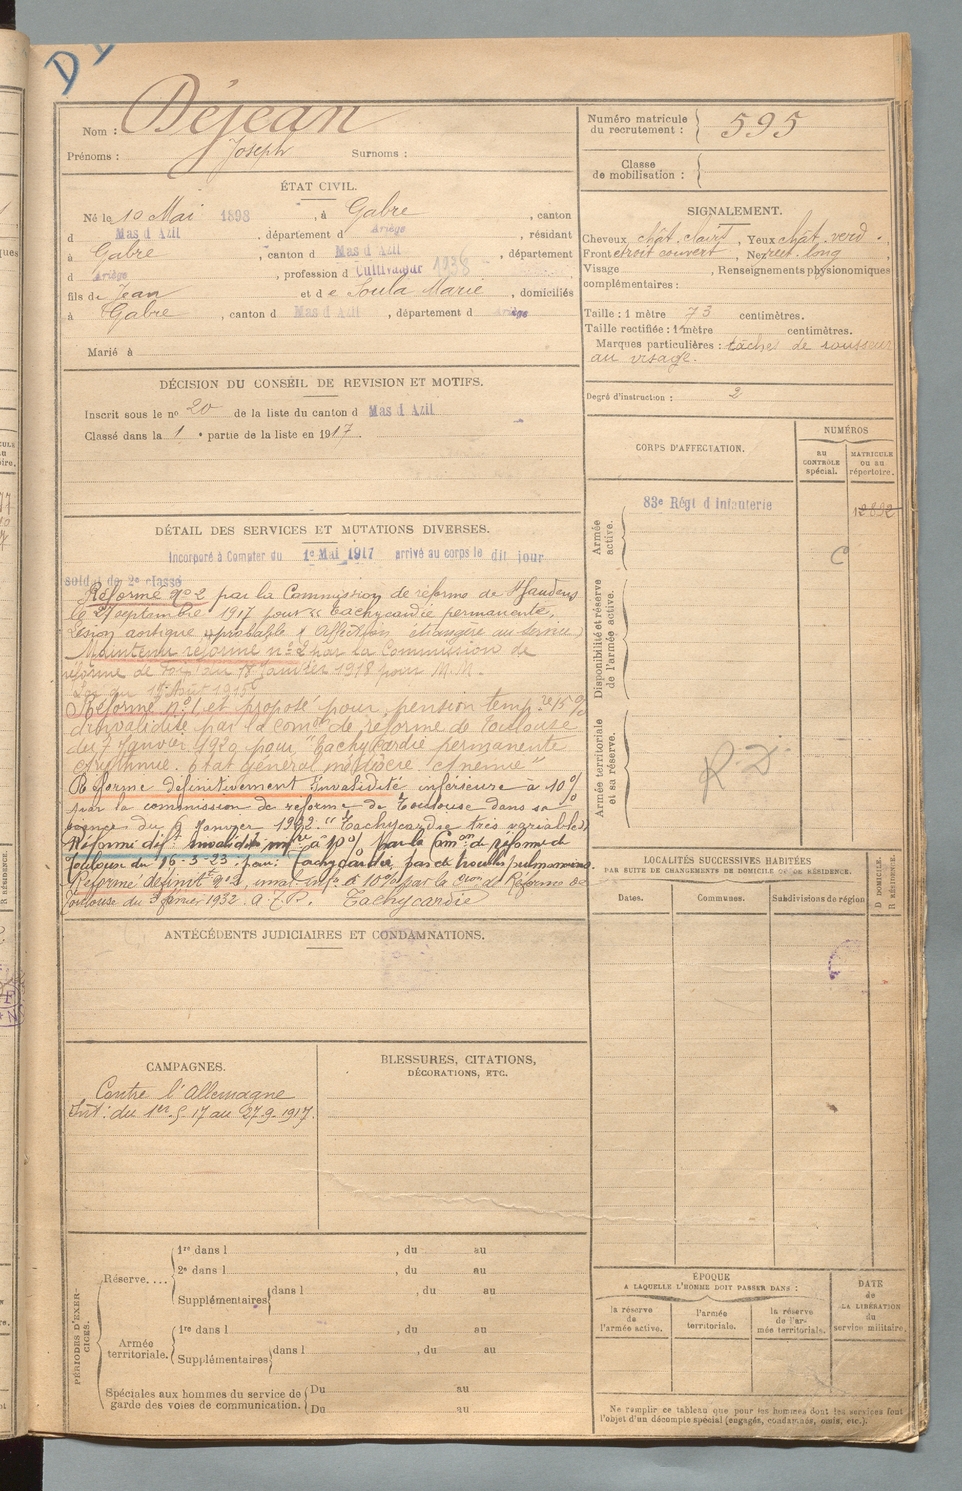 Nom : Déjean
Prénoms : Joseph Surnoms :
Numéro matricule du recrutement : 595
Classe de mobilisation :
ÉTAT CIVIL.
Né le 10 Mai 1898, à Gabre, canton
d Mas d Azil, département d Ariège, résidant
à Gabre, canton d Mas d Azil, département
d Ariège, profession d Cultivateur 1938
fils de Jean et d e Soula Marie, domiciliés
à Gabre, canton d Mas d Azil, département d Ariège
Marié à
SIGNALEMENT.
Cheveux chât. clairs, Yeux chât. verd.
Front droit couvert, Nez rect. long,
Visage , Renseignements physionomiques
complémentaires :
Taille : 1 mètre 73 centimètres.
Taille rectifiée : 1 mètre centimètres.
Marques particulières : tâches de rousseur
au visage.
Degré d'instruction : 2
DÉCISION DU CONSEIL DE REVISION ET MOTIFS.
Inscrit sous le n° 20 de la liste du canton d Mas d Azil
Classé dans la 1 e partie de la liste en 1917.
CORPS D'AFFECTATION.
NUMÉROS
AU CONTRÔLE spécial.
MATRICULE OU AU répertoire.
Armée active.
83e Régt d Infanterie 12892
C
Disponibilité et réserve de l'armée active.
Armée territoriale et sa réserve.
R D
DÉTAIL DES SERVICES ET MUTATIONS DIVERSES.
Incorporé à Compter du 1e Mai 1917 arrivé au corps le dit jour
soldat de 2e classe
Réformé n° 2 par la Commission de réforme de St Gaudens
le 27 septembre 1917 pour "Tachycardie permanente,
Lésion aortique probable" Affection étrangère au service
Maintenu réformé n° 2 par la Commission de
réforme de Foix du 18 Janvier 1918 pour M.M.
Loi du 1915
Réformé n° 1 et proposé pour pension temp re 15 %
d'invalidité par la Comon de réforme de Toulouse
du 7 Janvier 1920 pour "Tachycardie permanente
Arythmie. Etat général médiocre. Anémie"
Réformé définitivement Invalidité inférieure à 10 %
par la commission de réforme de Toulouse dans sa
séance du 6 Janvier 1922. "Tachycardie très variable"
Réformé dift Invalidité infre à 10 % par la Comon de réforme de
Toulouse du 16-3-23 pour : Tachycardie pas de troubles pulmonaires.
Réformé définitt n° 2, inval. infre à 10 % par la Cion de Réforme de
Toulouse du Janvier 1932. Tachycardie
ANTÉCÉDENTS JUDICIAIRES ET CONDAMNATIONS.
LOCALITÉS SUCCESSIVES HABITÉES
PAR SUITE DE CHANGEMENTS DE DOMICILE OU DE RÉSIDENCE.
Dates. Communes. Subdivisions de région
D DOMICILE.
R RÉSIDENCE.
CAMPAGNES.
Contre l'Allemagne
Int : du 1er-5-17 au 27-9-1917.
BLESSURES, CITATIONS,
DÉCORATIONS, ETC.
PÉRIODES D'EXERCICES.
Réserve....
1re dans l , du au
2e dans l , du au
Supplémentaires dans l , du au
Armée territoriale.
1re dans l , du au
Supplémentaires dans l , du au
Spéciales aux hommes du service de garde des voies de communication.
Du au
Du au
ÉPOQUE
A LAQUELLE L'HOMME DOIT PASSER DANS :
la réserve de l'armée active.
l'armée territoriale.
la réserve de l'armée territoriale.
DATE de LA LIBÉRATION du service militaire.
Ne remplir ce tableau que pour les hommes dont les services font
l'objet d'un décompte spécial (engagés, condamnés, omis, etc.).